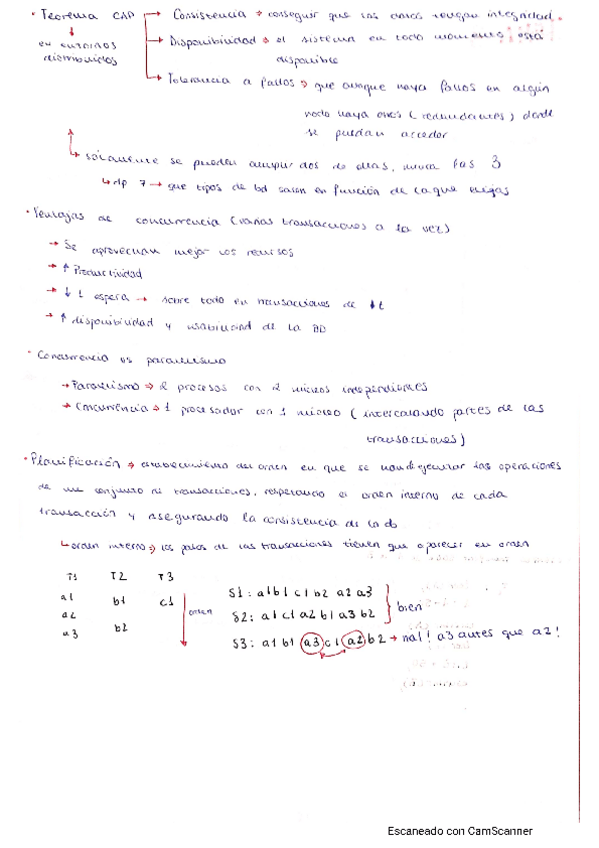 · Teorema CAP → Consistencia → conseguir que los datos tengan integridad.
↓
en entornos distribuidos
→ Disponibilidad → el sistema en todo momento está disponible
→ Tolerancia a fallos → que aunque haya fallos en algún
nodo haya otros (redundantes) donde
se puedan acceder
↳ solamente se pueden cumplir dos de ellas, nunca las 3
↳ dp 7 → que tipos de bd salen en función de la que elijas
· Ventajas de concurrencia (varias transacciones a la vez)
→ Se aprovechan mejor los recursos
→ ↑ Productividad
→ ↓ t espera → sobre todo en transacciones de ↓t
→ ↑ disponibilidad y usabilidad de la BD
· Concurrencia vs paralelismo
→ Paralelismo → 2 procesos con 2 núcleos independientes
→ Concurrencia → 1 procesador con 1 núcleo (intercalando partes de las
transacciones)
· Planificación → establecimiento del orden en que se van a ejecutar las operaciones
de un conjunto de transacciones, respetando el orden interno de cada
transacción y asegurando la consistencia de la db
↳ orden interno → los pasos de las transacciones tienen que aparecer en orden
T1 T2 T3
a1 b1 c1
a2 b2
a3
orden
S1: a1 b1 c1 b2 a2 a3
S2: a1 c1 a2 b1 a3 b2
bien
S3: a1 b1 a3 c1 a2 b2 → mal! a3 antes que a2!
Escaneado con CamScanner